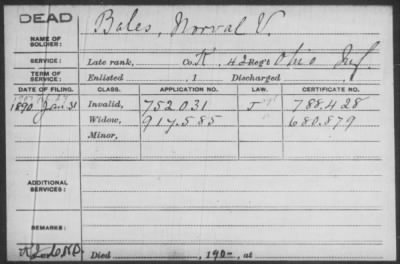 DEAD
NAME OF SOLDIER: Bales, Norval V.
SERVICE: Late rank, Co. K, 42 Reg't Ohio Inf.
TERM OF SERVICE: Enlisted , 1 Discharged , 1
DATE OF FILING. CLASS. APPLICATION NO. LAW. CERTIFICATE NO.
1890 Jan. 31 Invalid, 752.031 J 788.428
Widow, 917.585 680.879
Minor,
ADDITIONAL SERVICES:
REMARKS:
Died , 190-, at